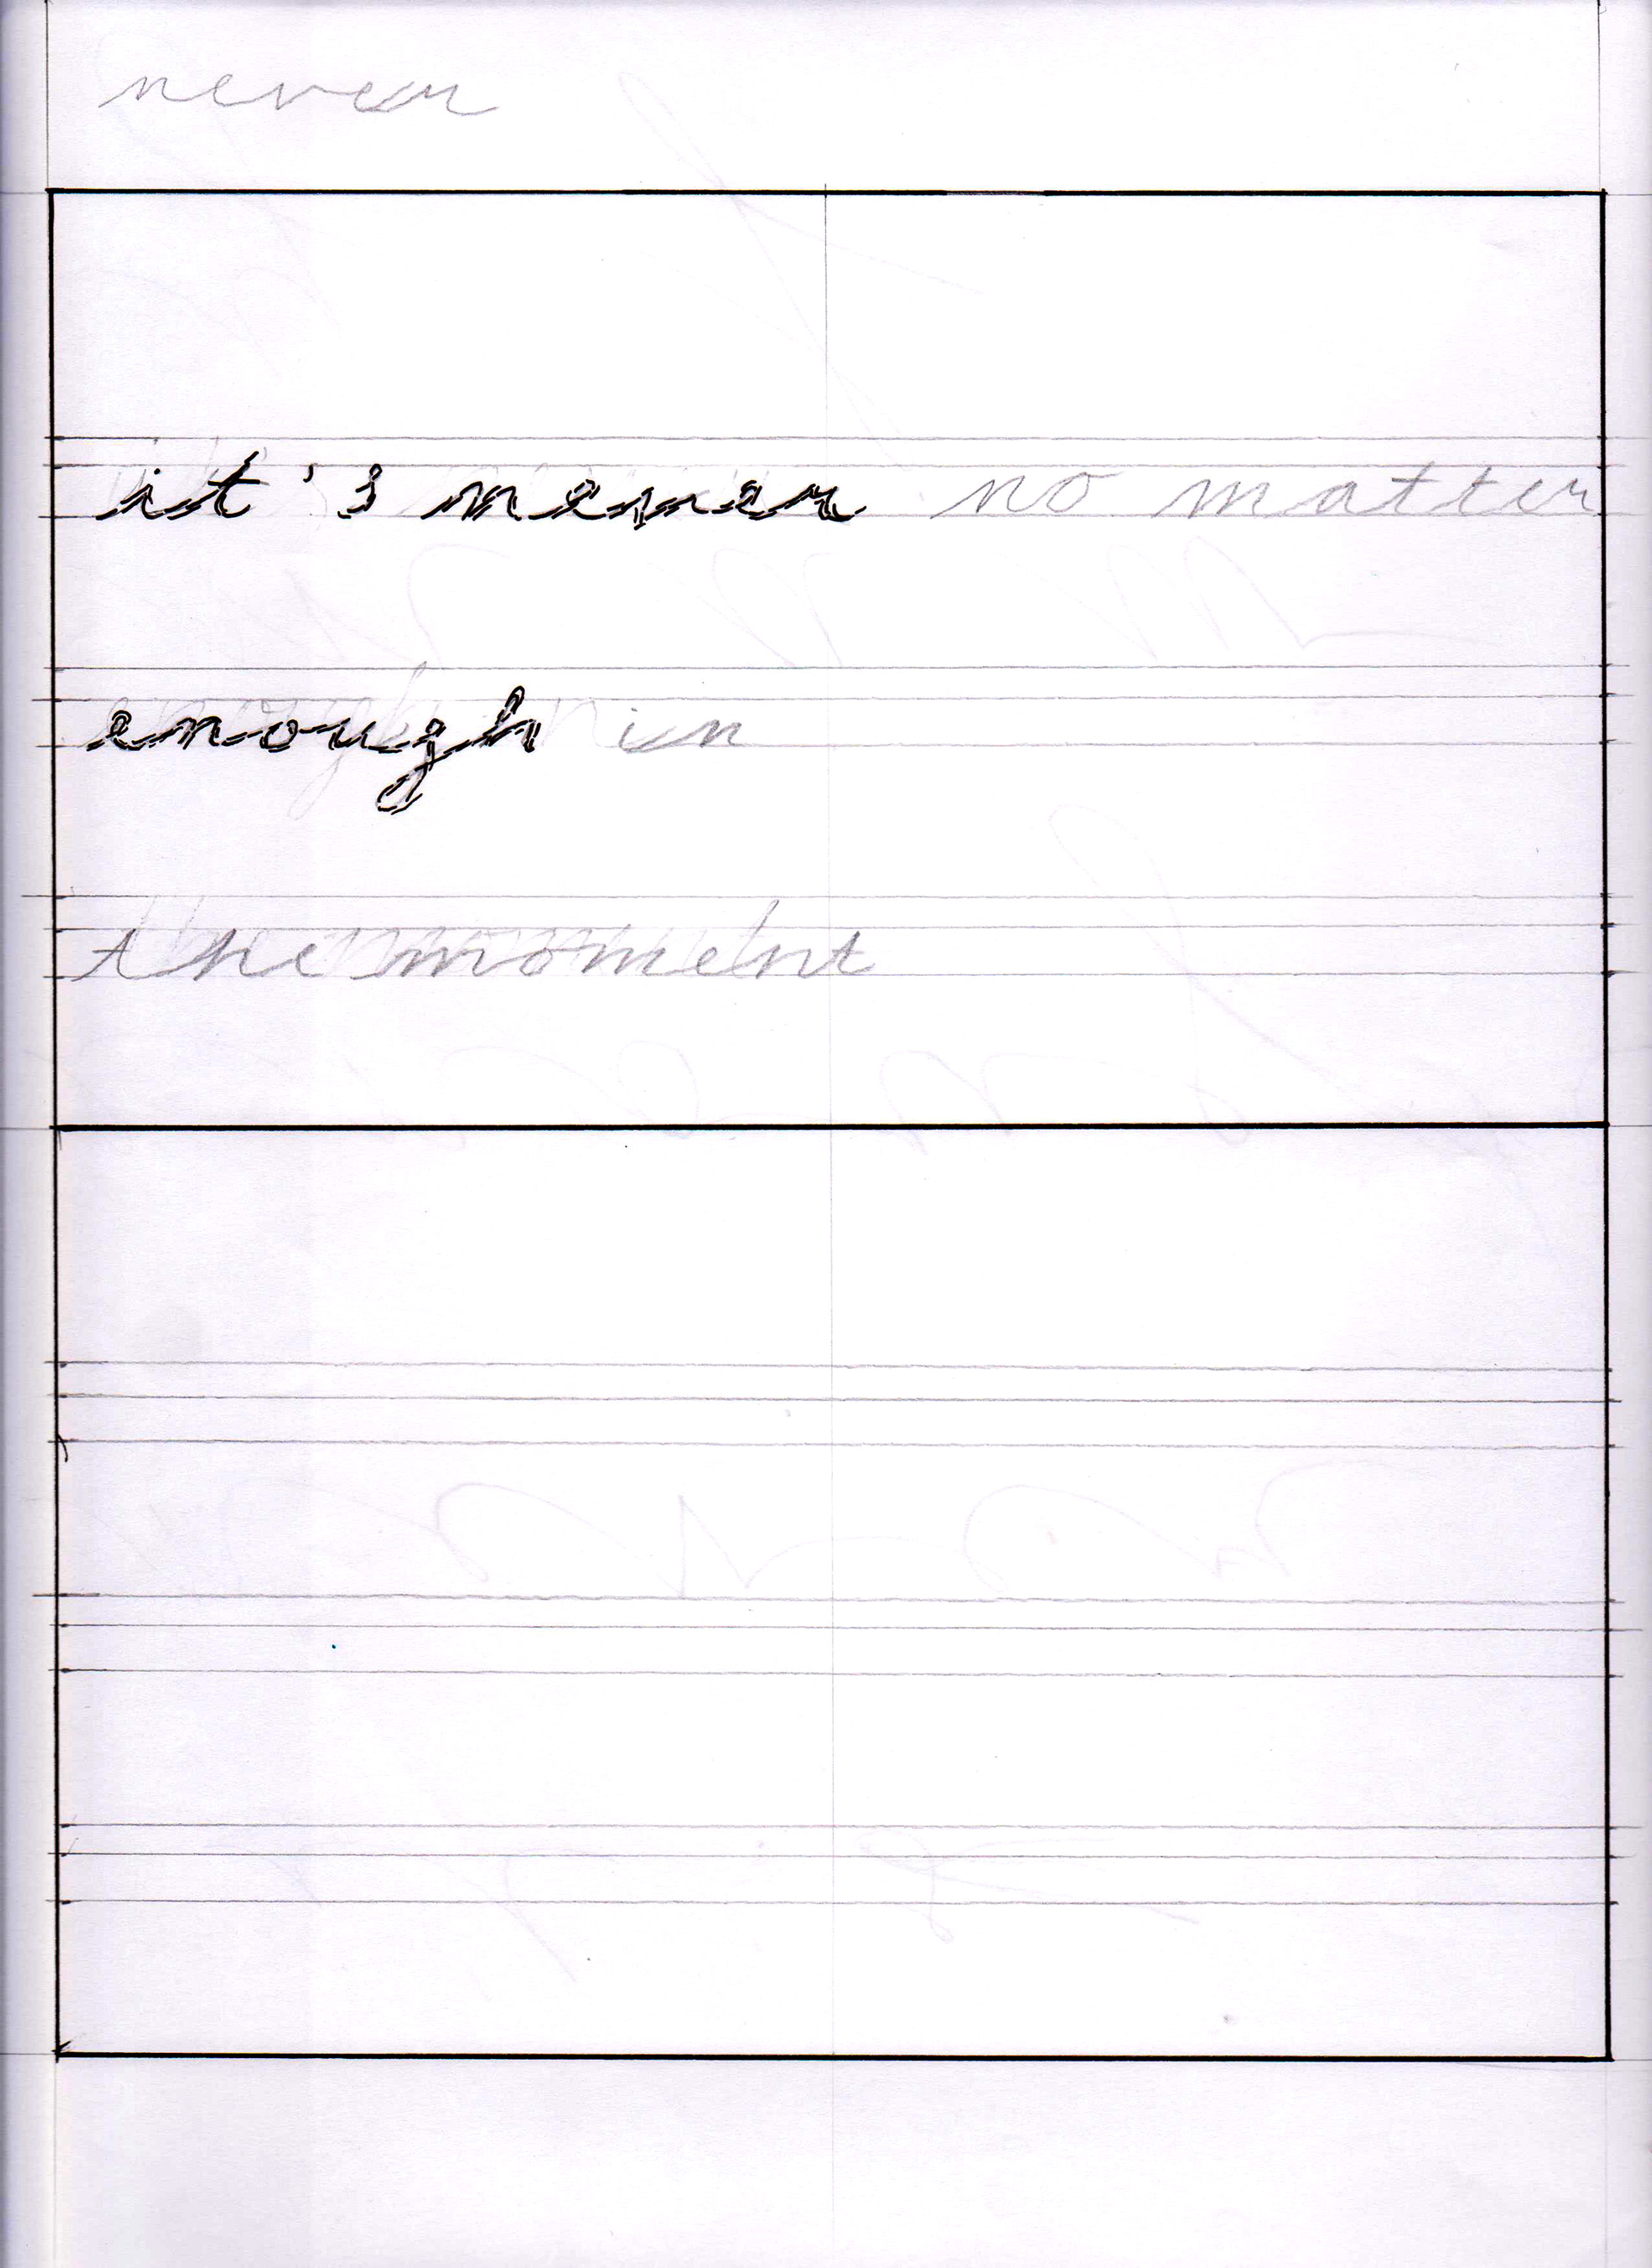 never
it's never no matter
enough in
the moment